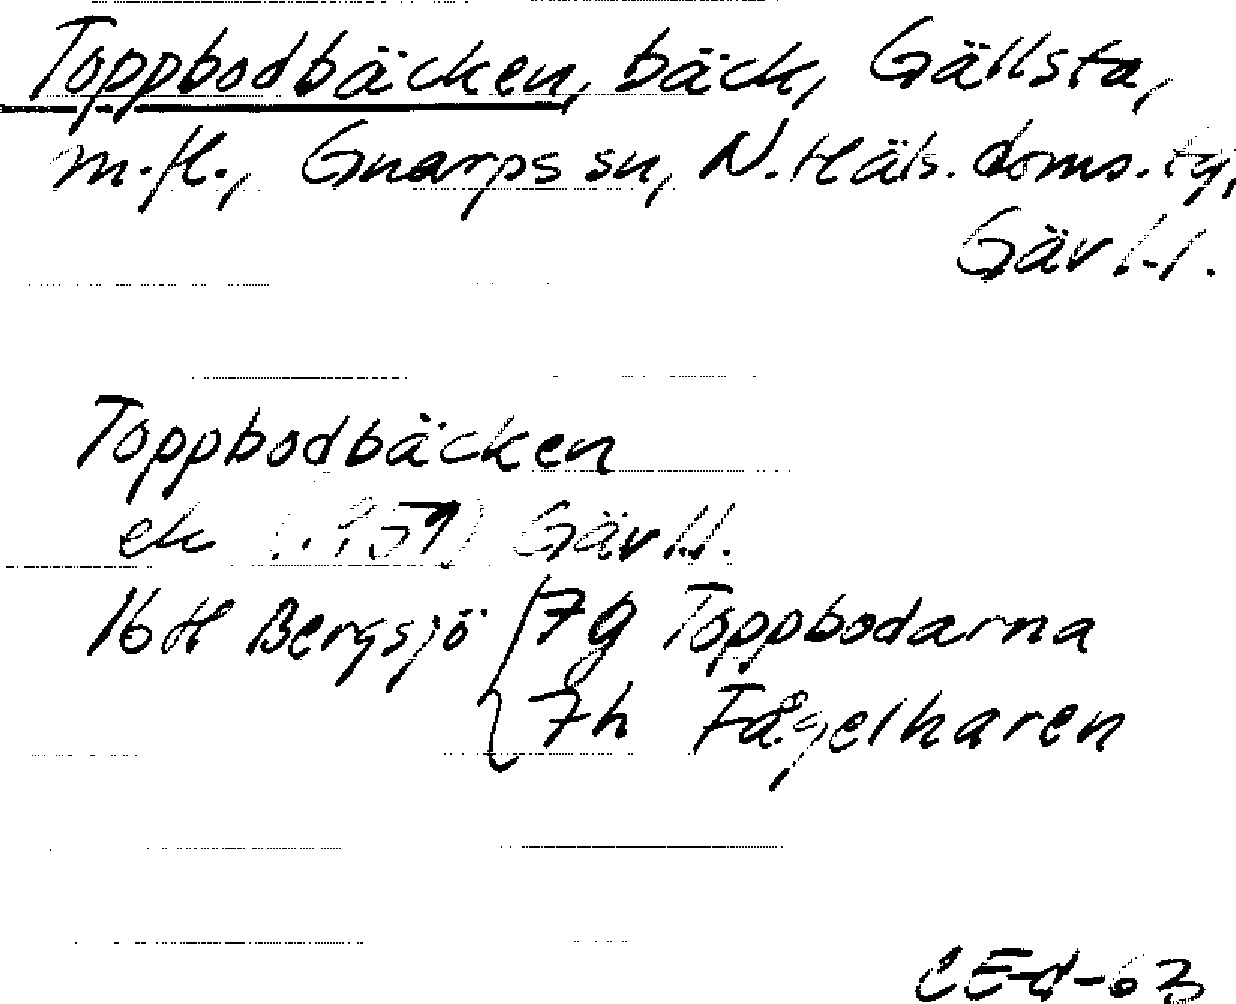 Toppbodbäcken, bäck, Gällsta,
m.fl., Gnarps sn, N. Häls. doms. tg,
Gävl.l.
Toppbodbäcken
ek (1959) Gävl.l.
16H Bergsjö { 7g Toppbodarna
7h Fågelharen
CEd-63